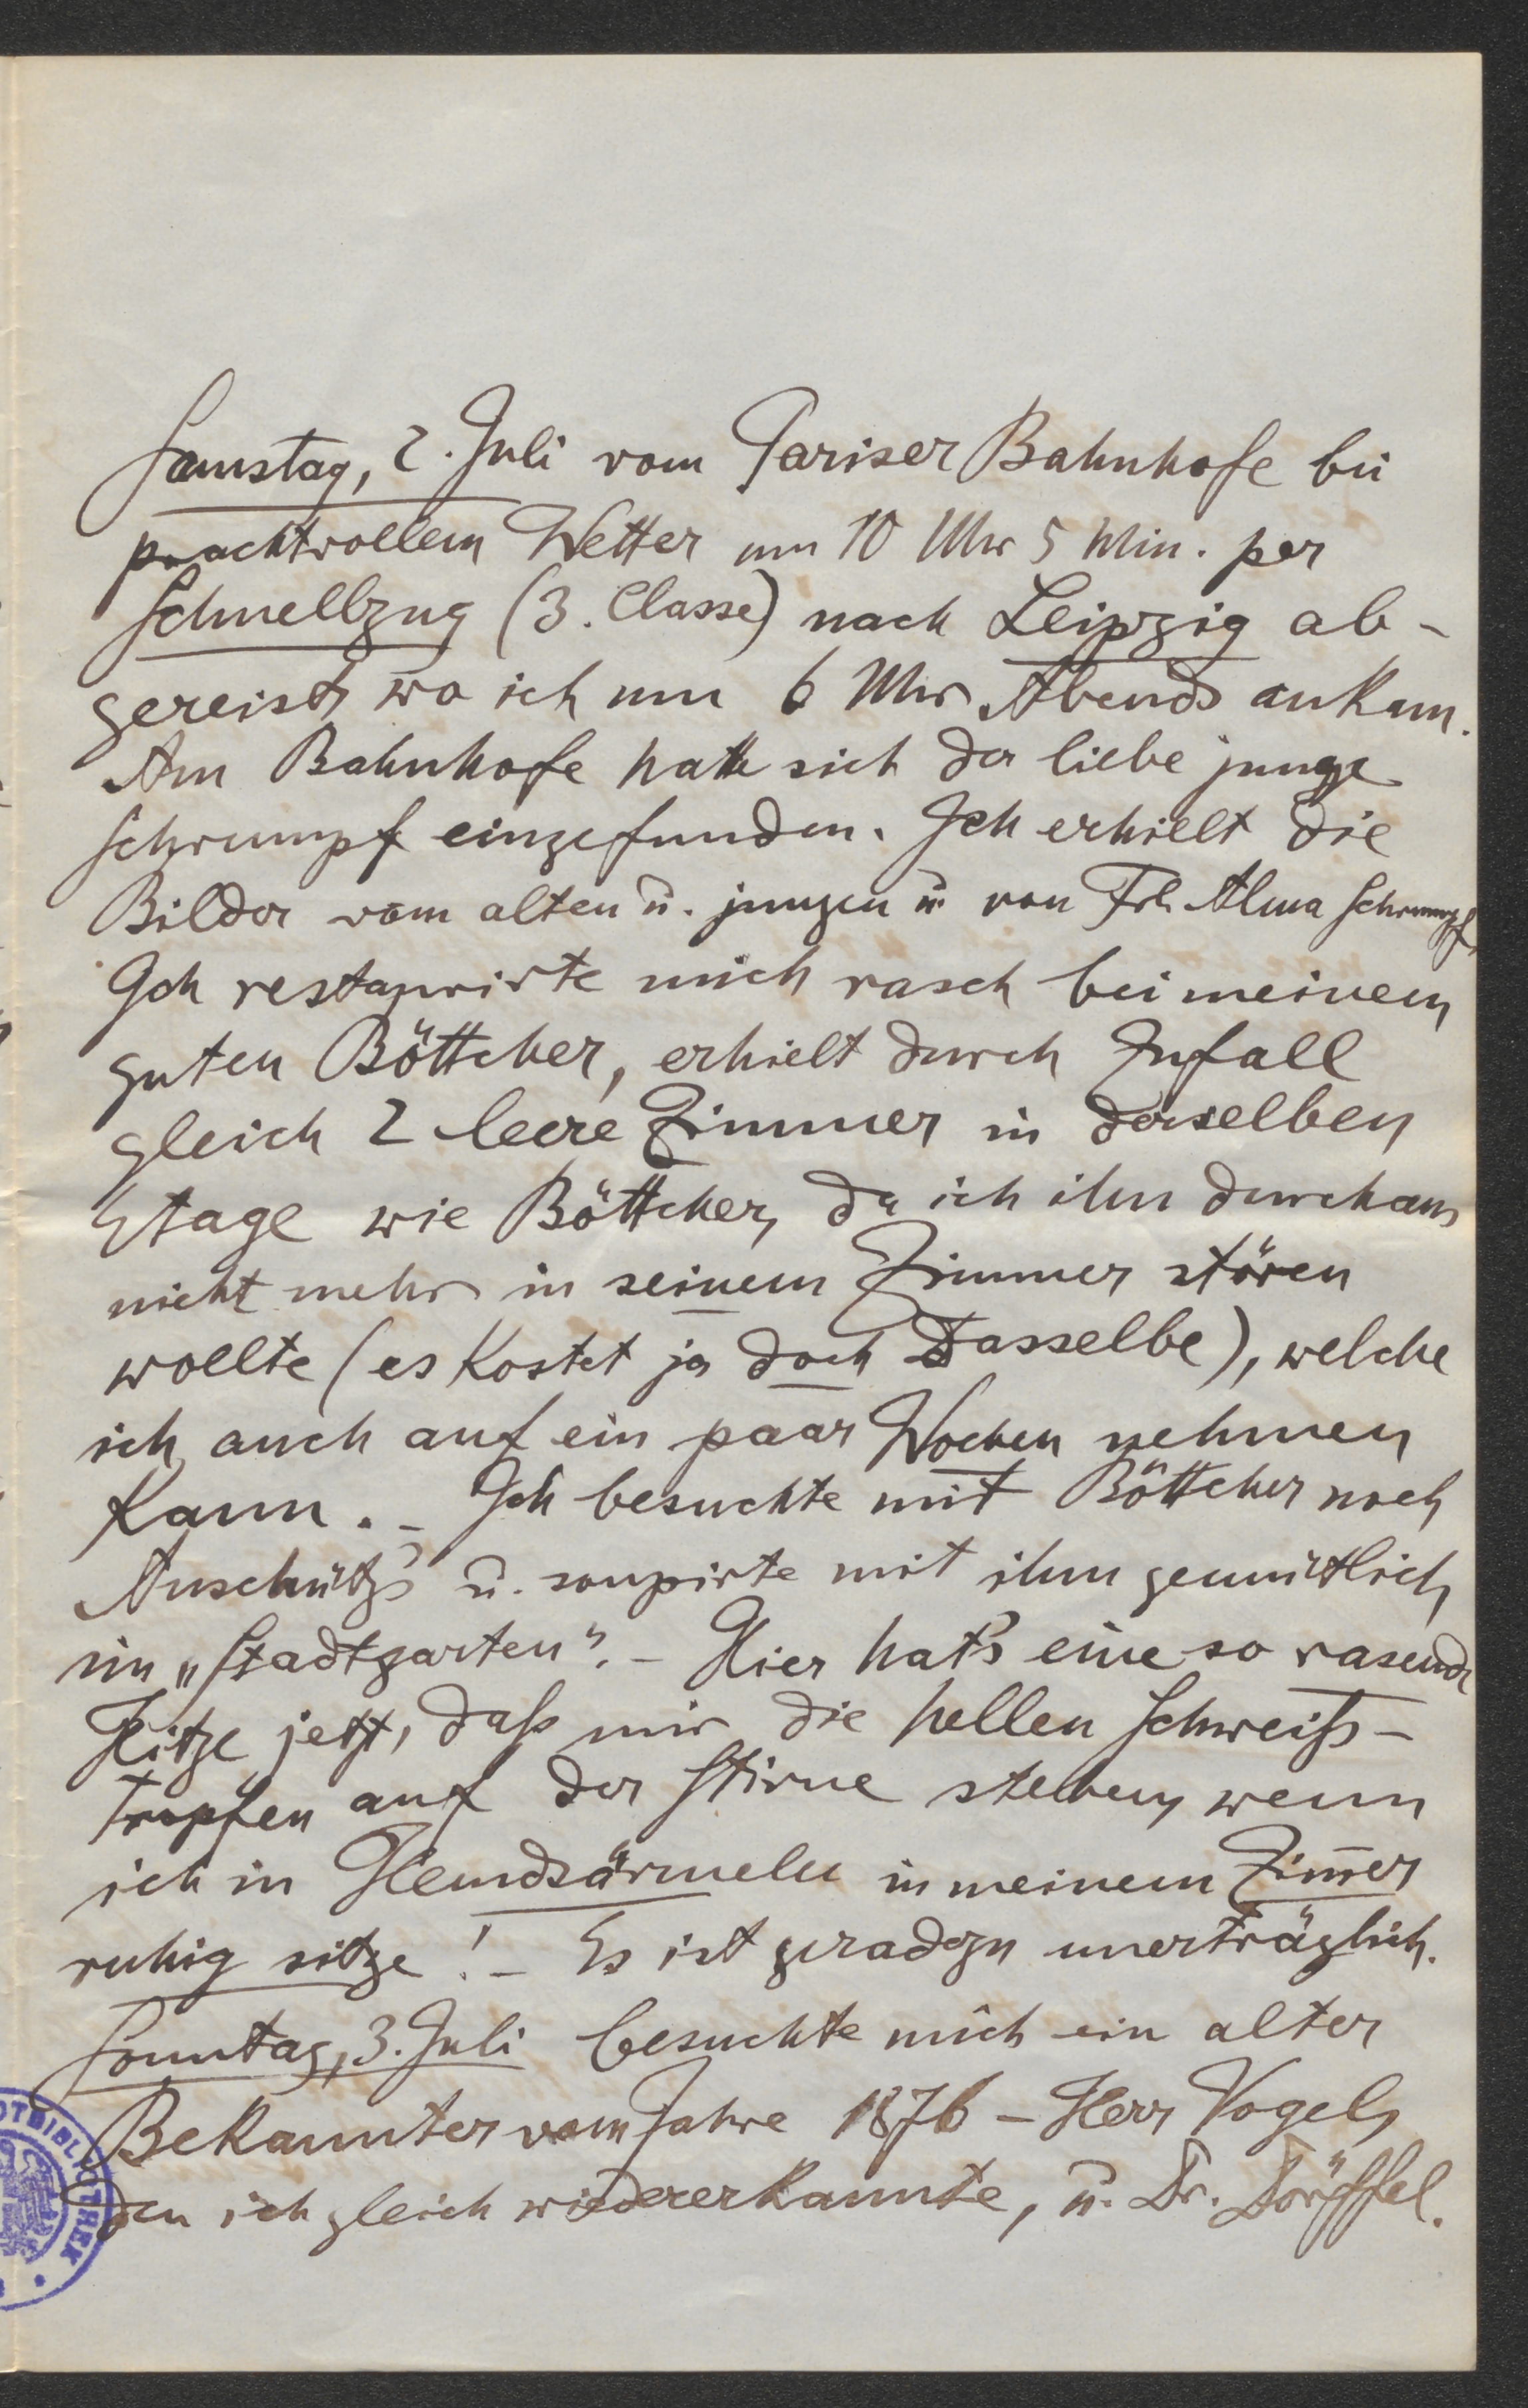 Samstag, 2. Juli vom Pariser Bahnhofe bei
prachtvollem Wetter um 10 Uhr 5 Min. per
Schnellzug (3. Classe) nach Leipzig ab-
gereist, wo ich um 6 Uhr Abends ankam.
Am Bahnhofe hatte sich der liebe junge
Schrumpf eingefunden. Ich erhielt die
Bilder vom alten u. jungen u. von Frl. Alma Schrumpf.
Ich restaurirte mich rasch bei meinem
guten Böttcher, erhielt durch Zufall
gleich 2 leere Zimmer in derselben
Etage wie Böttcher, da ich ihn durchaus
nicht mehr in seinem Zimmer stören
wollte (es kostet ja doch Dasselbe), welche
ich auch auf ein paar Wochen nehmen
kann. – Ich besuchte mit Böttcher noch
Anschütz's u. soupirte mit ihm gemütlich
im „Stadtgarten“. – Hier hat's eine so rasende
Hitze jetzt, daß mir die hellen Schweiß-
tropfen auf der Stirne stehen, wenn
ich in Hemdsärmeln in meinem Zim̄er
ruhig sitze! – Es ist geradezu unerträglich.
Sonntag, 3. Juli besuchte mich ein alter
Bekannter vom Jahre 1876 – Herr Vogel,
den ich gleich wiedererkannte, u. Dr. Dörffel.
OTBIBLIOTHEK